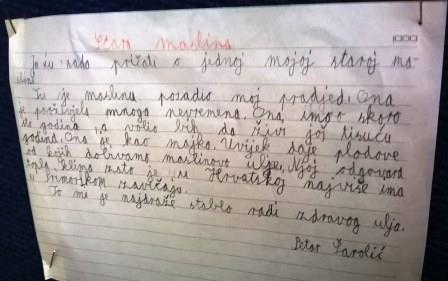 Stara maslina
Ja ću sada pričati o jednoj mojoj staroj ma-
slini.
Tu je maslinu posadio moj pradjed. Ona
je proživjela mnogo nevremena. Ona ima skoro
sto godina, a volio bih da živi još tisuću
godina. Ona je kao majka. Uvijek daje plodove
od kojih dobivamo maslinovo ulje. Njoj odgovara
topla klima zato je u Hrvatskoj najviše ima
u Primorskom zavičaju.
To mi je najdraže stablo radi zdravog ulja.
Petar Šarolić